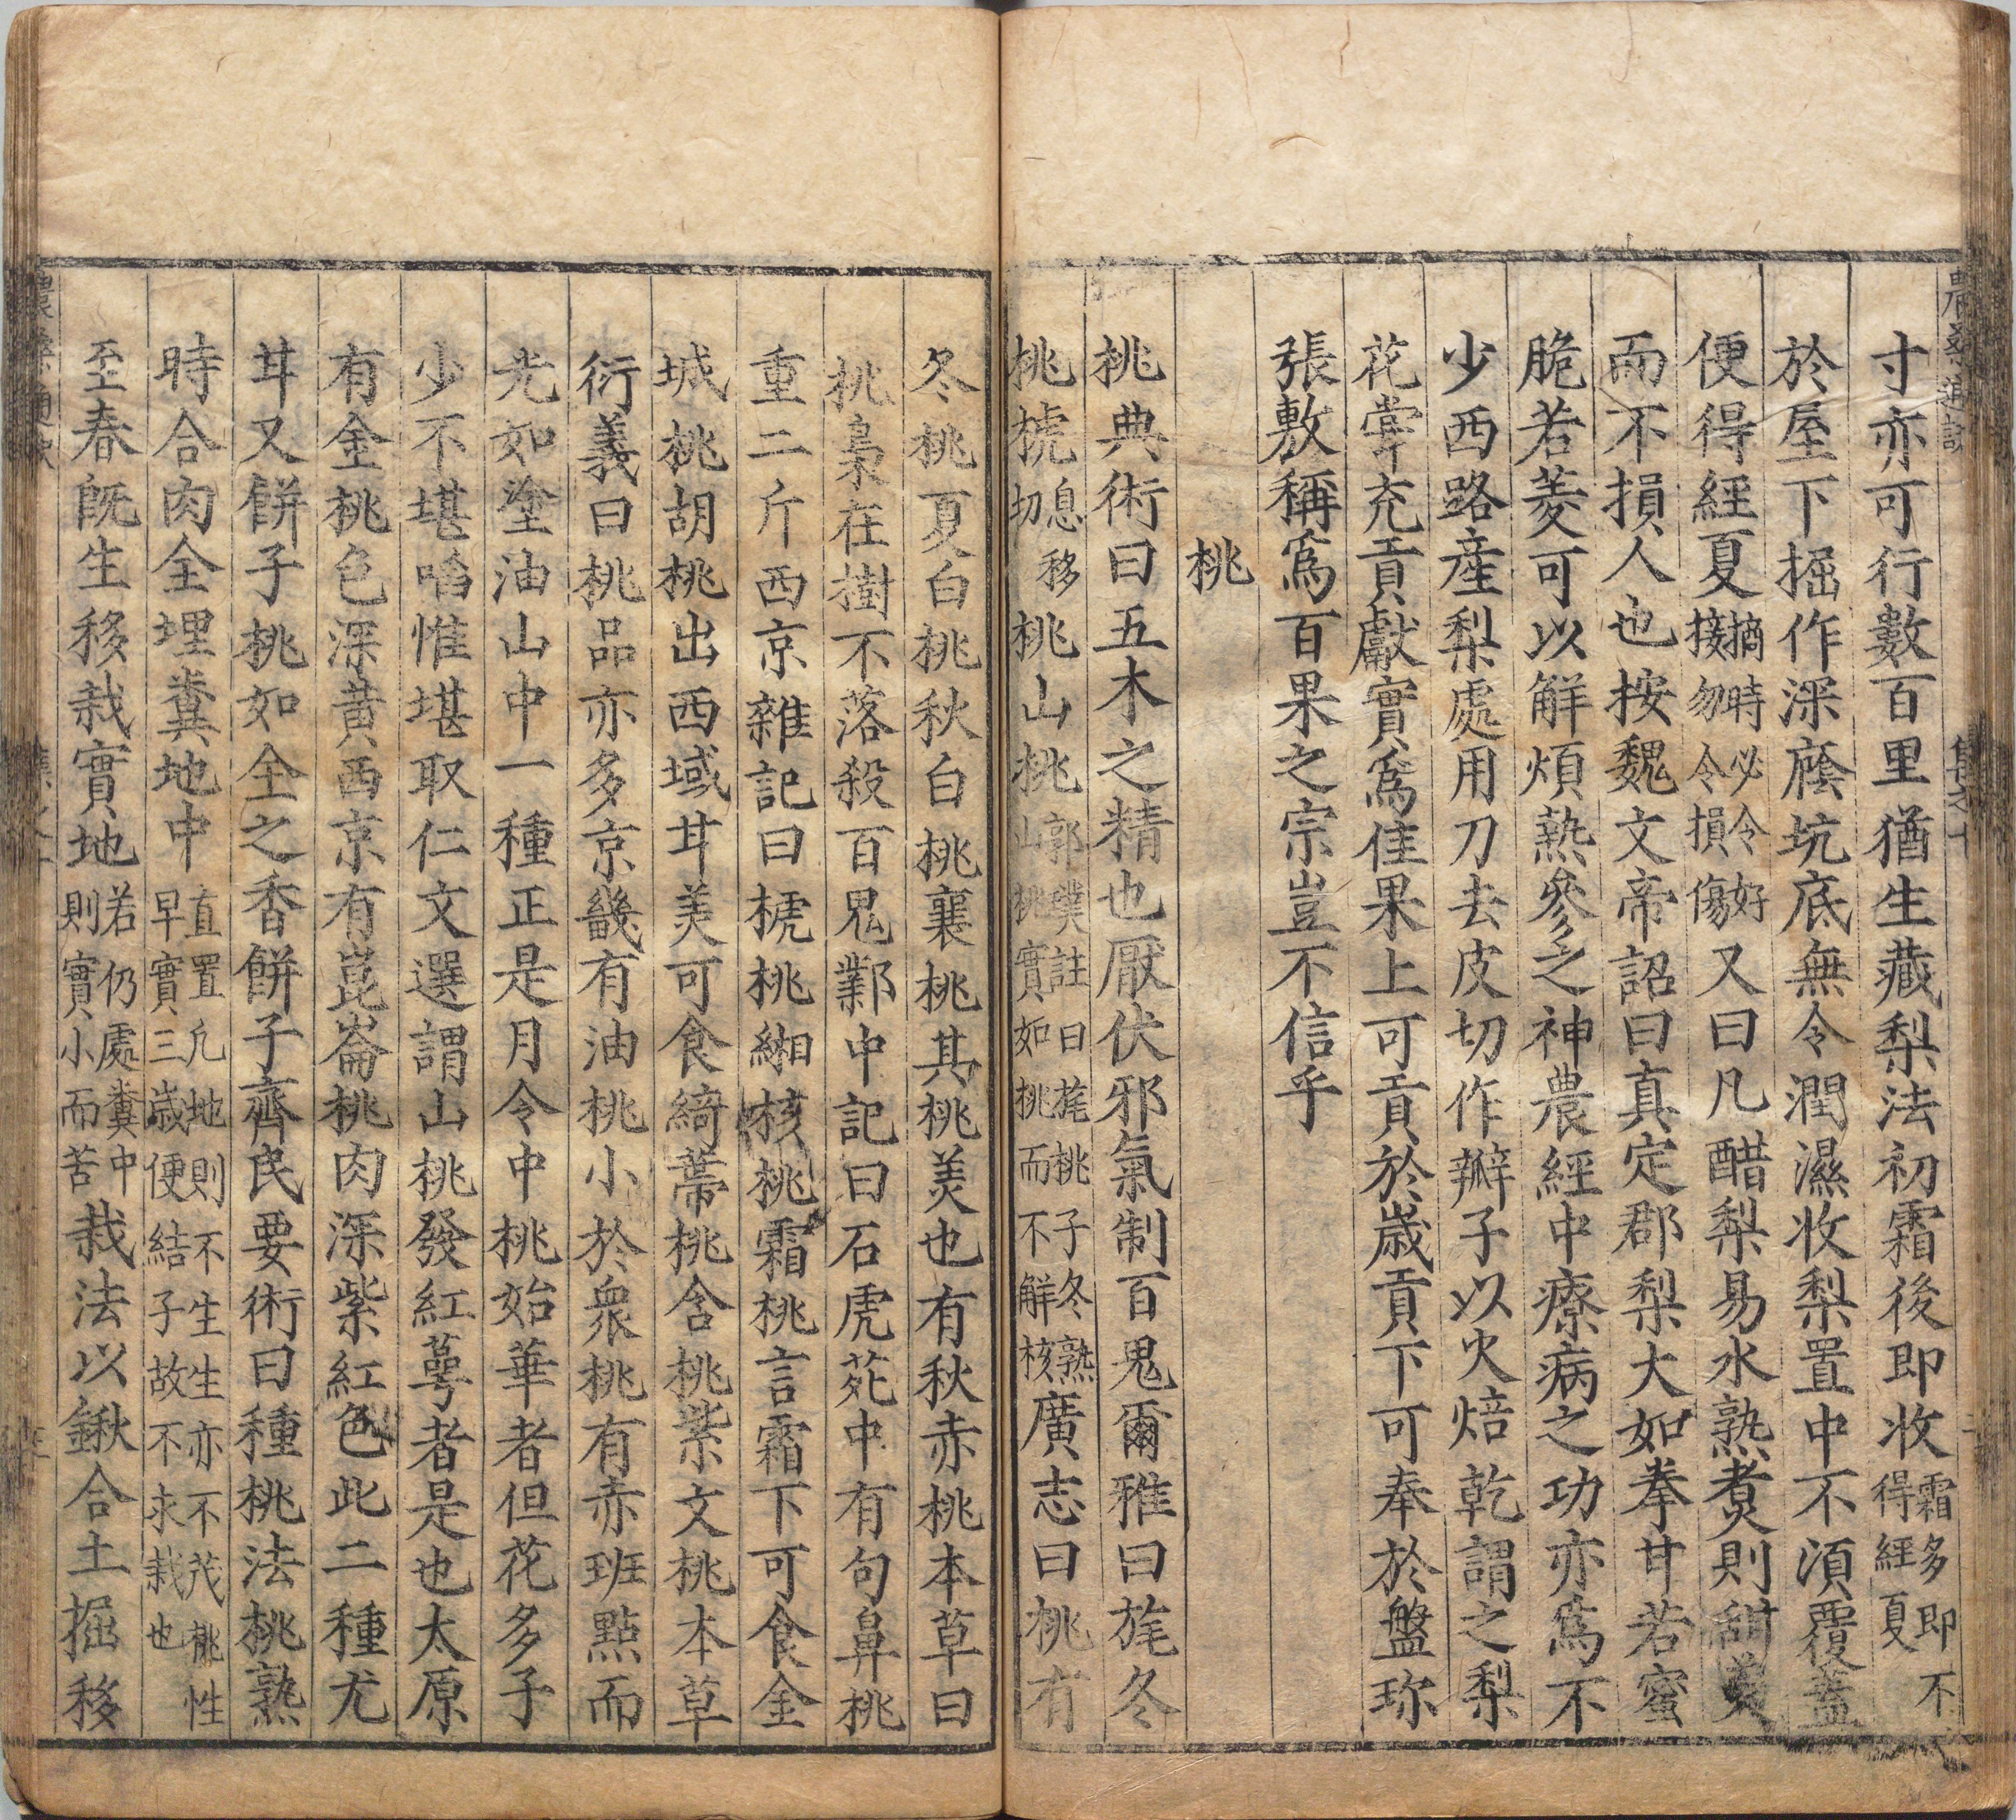 寸亦可行數百里猶生藏梨法初霜後即收霜多即不得經夏
於屋下掘作深廕坑底無令潤濕收梨置中不湏覆蓋
便得經夏摘時必令好接勿令損傷又曰凡醋梨易水熟煮則甜美
而不損人也按魏文帝詔曰真定郡梨大如拳甘若蜜
脆若菱可以解煩熱參之神農經中療病之功亦爲不
少西路産梨處用刀去皮切作瓣子以火焙乾謂之梨
花甞充貢獻實爲佳果上可貢於歲貢下可奉於盤珎
張敷稱爲百果之宗豈不信乎
桃
桃典術曰五木之精也厭伏邪氣制百鬼爾雅曰旄冬
桃榹息移切桃山桃郭璞註曰旄桃子冬熟山桃實如桃而不解核廣志曰桃有
冬桃夏白桃秋白桃襄桃其桃美也有秋赤桃本草曰
桃梟在樹不落殺百鬼鄴中記曰石虎苑中有句鼻桃
重二斤西京雜記曰榹桃緗核桃霜桃言霜下可食金
城桃胡桃出西域甘美可食綺蔕桃含桃紫文桃本草
衍義曰桃品亦多京畿有油桃小於衆桃有赤班點而
光如塗油山中一種正是月令中桃始華者但花多子
少不堪啗惟堪取仁文選謂山桃發紅萼者是也太原
有金桃色深黄西京有崑崙桃肉深紫紅色此二種尤
甘又餅子桃如全之香餅子齊民要術曰種桃法桃熟
時合肉全埋糞地中直置凡地則不生生亦不茂桃性早實三歲便結子故不求栽也
至春旣生移栽實地若仍處糞中則實小而苦栽法以鍬合土掘移